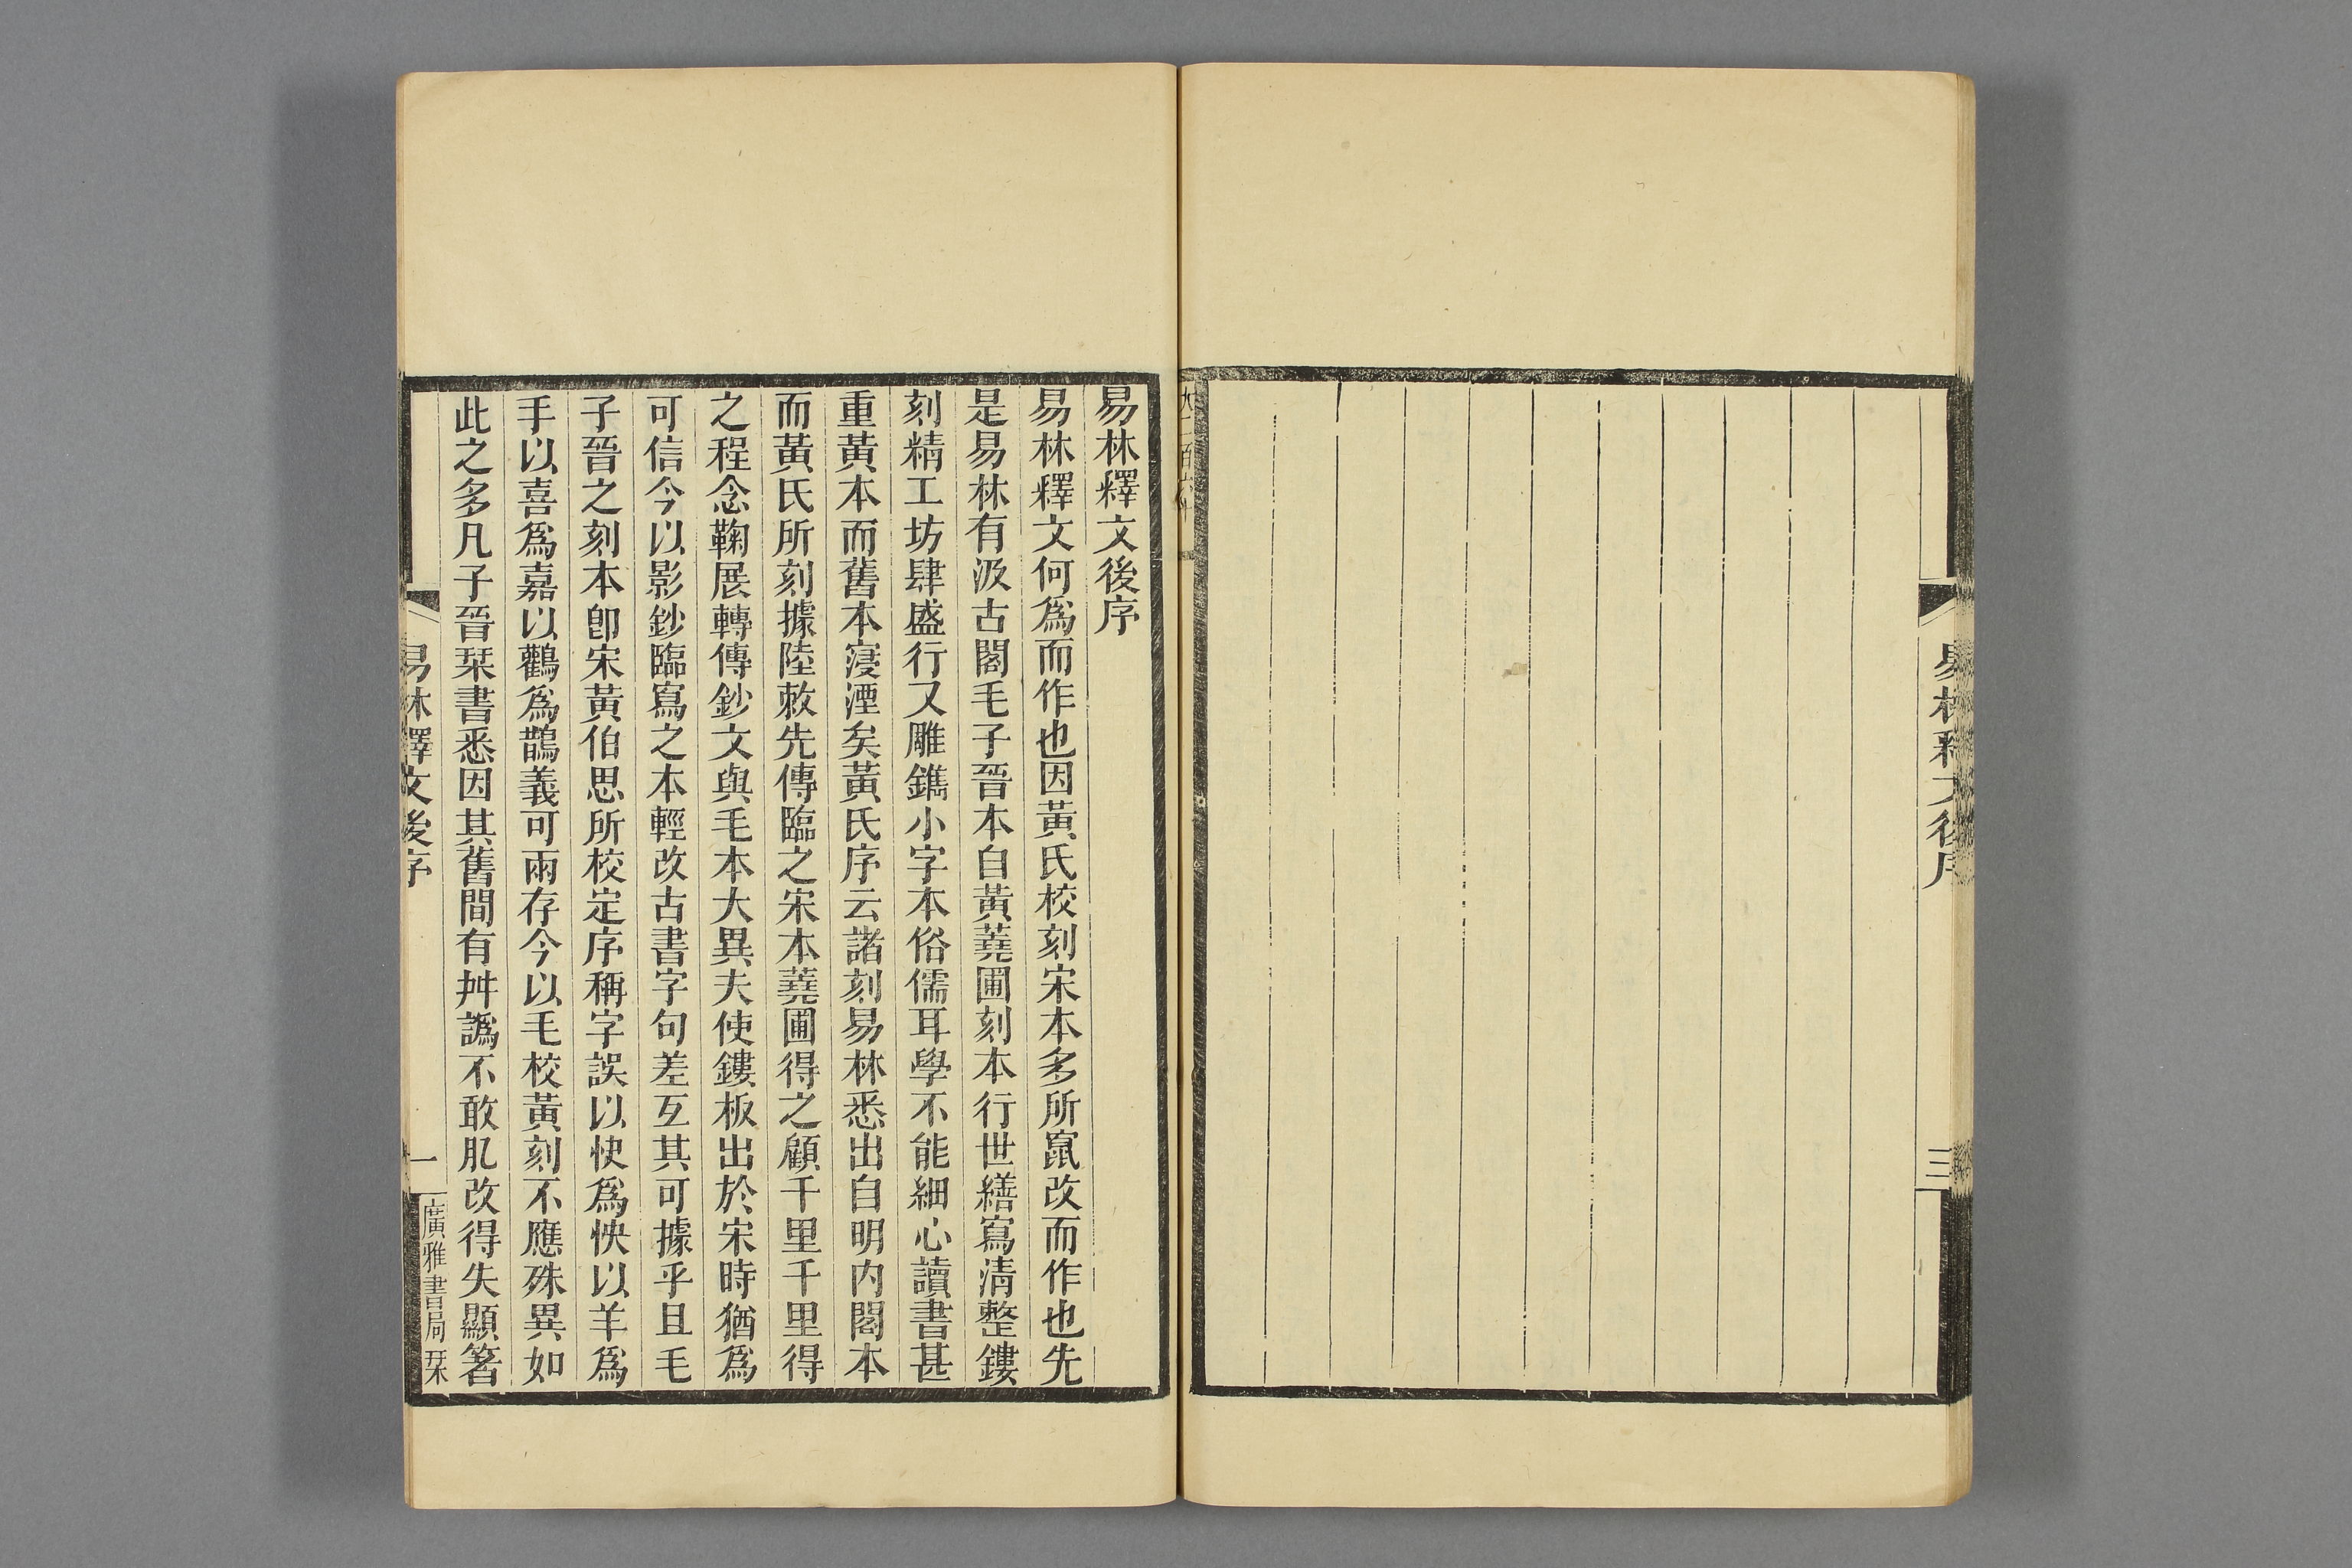 易林釋文後序
三
易林釋文後序
易林釋文何爲而作也因黃氏校刻宋本多所竄改而作也先
是易林有汲古閣毛子晉本自黃蕘圃刻本行世繕寫淸整鏤
刻精工坊肆盛行又雕鐫小字本俗儒耳學不能細心讀書甚
重黃本而舊本寖湮矣黃氏序云諸刻易林悉出自明內閣本
而黃氏所刻據陸敕先傳臨之宋本蕘圃得之顧千里千里得
之程念鞠展轉傳鈔文與毛本大異夫使鏤板出於宋時猶爲
可信今以影鈔臨寫之本輕改古書字句差互其可據乎且毛
子晉之刻本卽宋黃伯思所校定序稱字誤以快爲怏以羊爲
手以喜爲嘉以鸛爲鵲義可兩存今以毛校黃刻不應殊異如
此之多凡子晉栞書悉因其舊閒有舛譌不敢肊改得失顯箸
易林釋文後序
一
廣雅書局栞